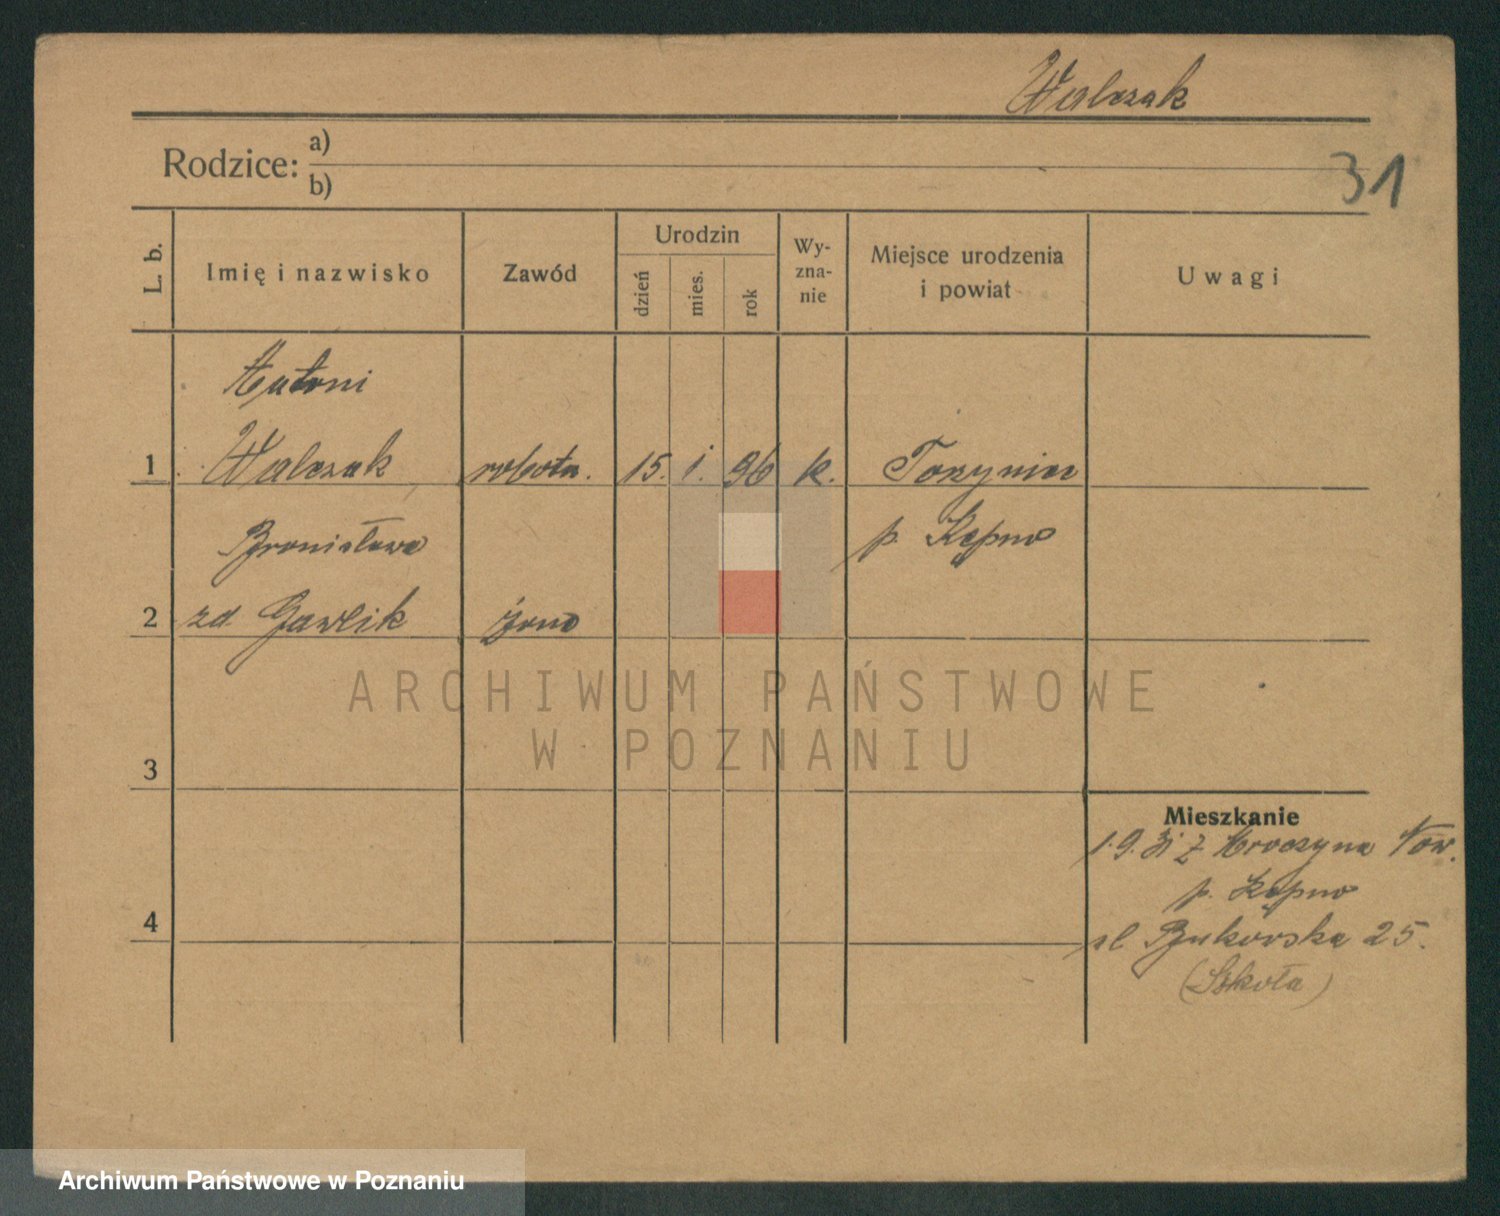 Walczak
Rodzice: a)
b)
31
L. b.
Imię i nazwisko
Zawód
Urodzin
dzień
mies.
rok
Wy-
zna-
nie
Miejsce urodzenia
i powiat
Uwagi
Antoni
1 Walczak robotn. 15. i. 96 k.
p. Kępno
Bronisława
2 zd. Gawlik żona
3
4
Mieszkanie
1.9.31 z Mroczyna Now.
p. Kępno
ul Bukowska 25.
(Szkoła)
ARCHIWUM PAŃSTWOWE
W POZNANIU
Archiwum Państwowe w Poznaniu